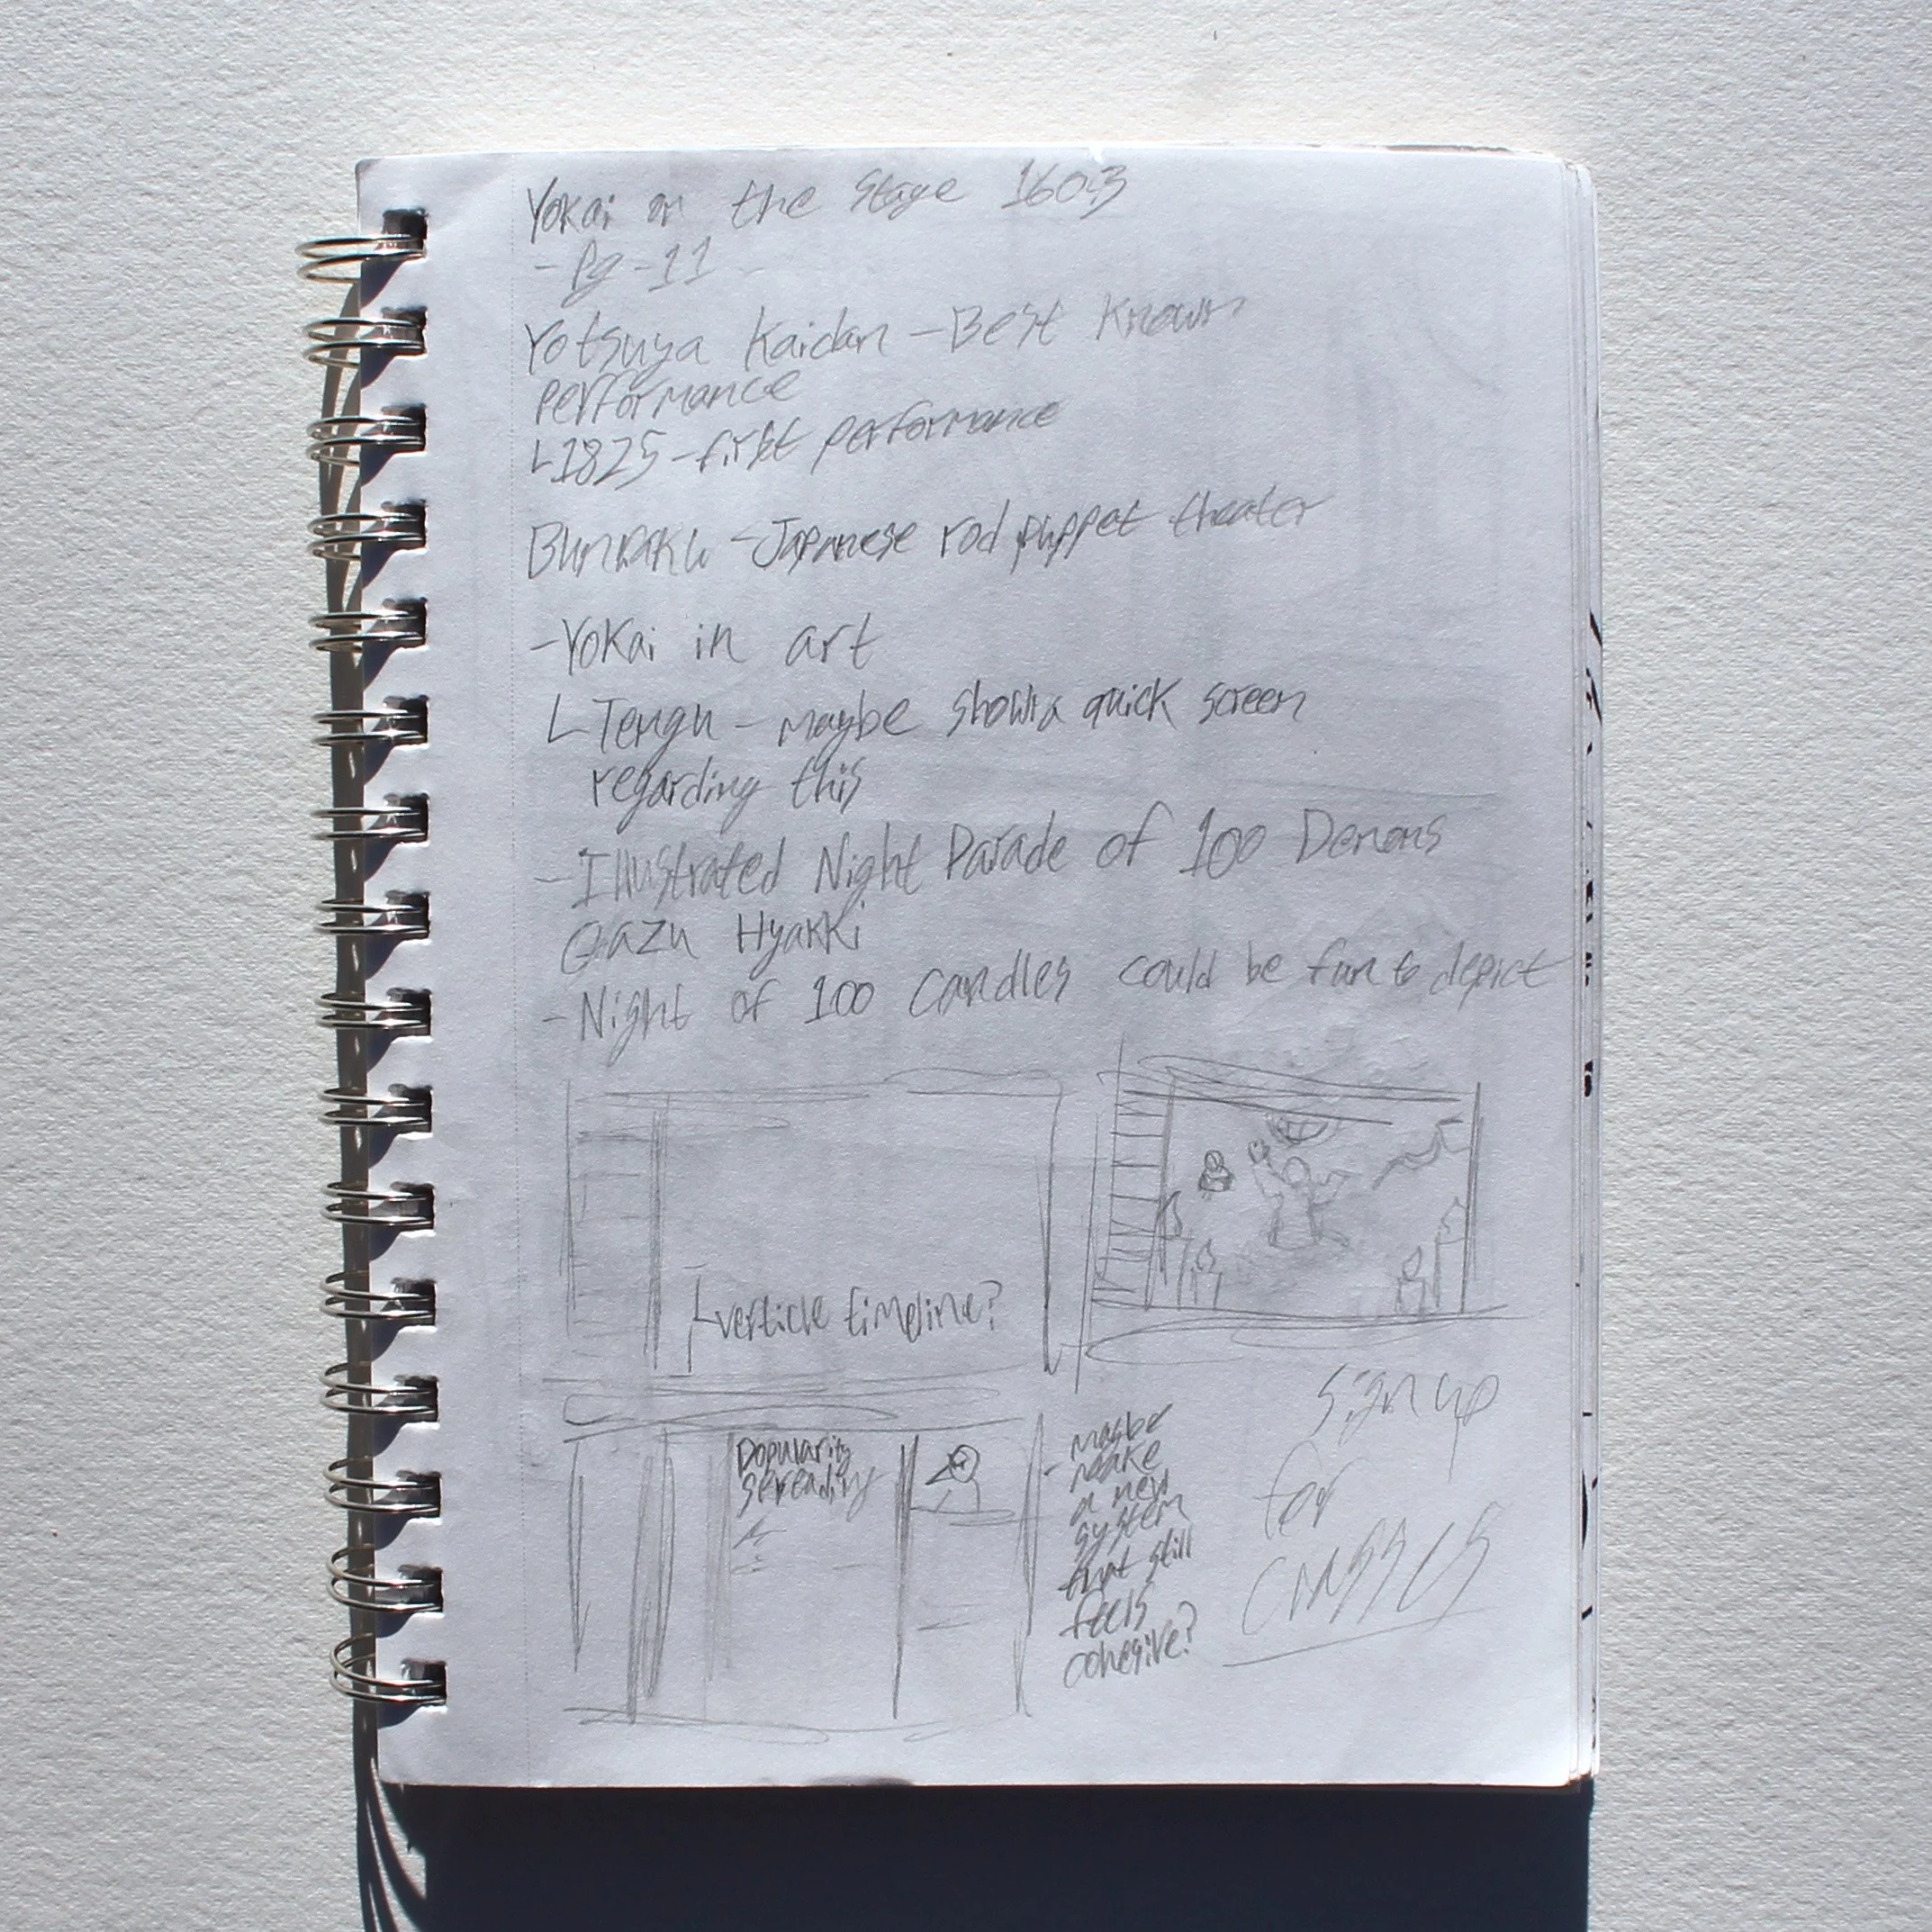 Yokai on the Stage 1603
- Pg-11
Yotsuya Kaidan - Best Known
performance
L 1825 - first performance
Bunraku - Japanese rod puppet theater
- Yokai in art
L Tengu - maybe show a quick screen
regarding this
- Illustrated Night Parade of 100 Demons
Gazu Hyakki
- Night of 100 Candles could be fun to depict
L verticle timeline?
Popularity
Spreading
- maybe
make
a new
system
that still
feels
cohesive?
Sign up
for
classes